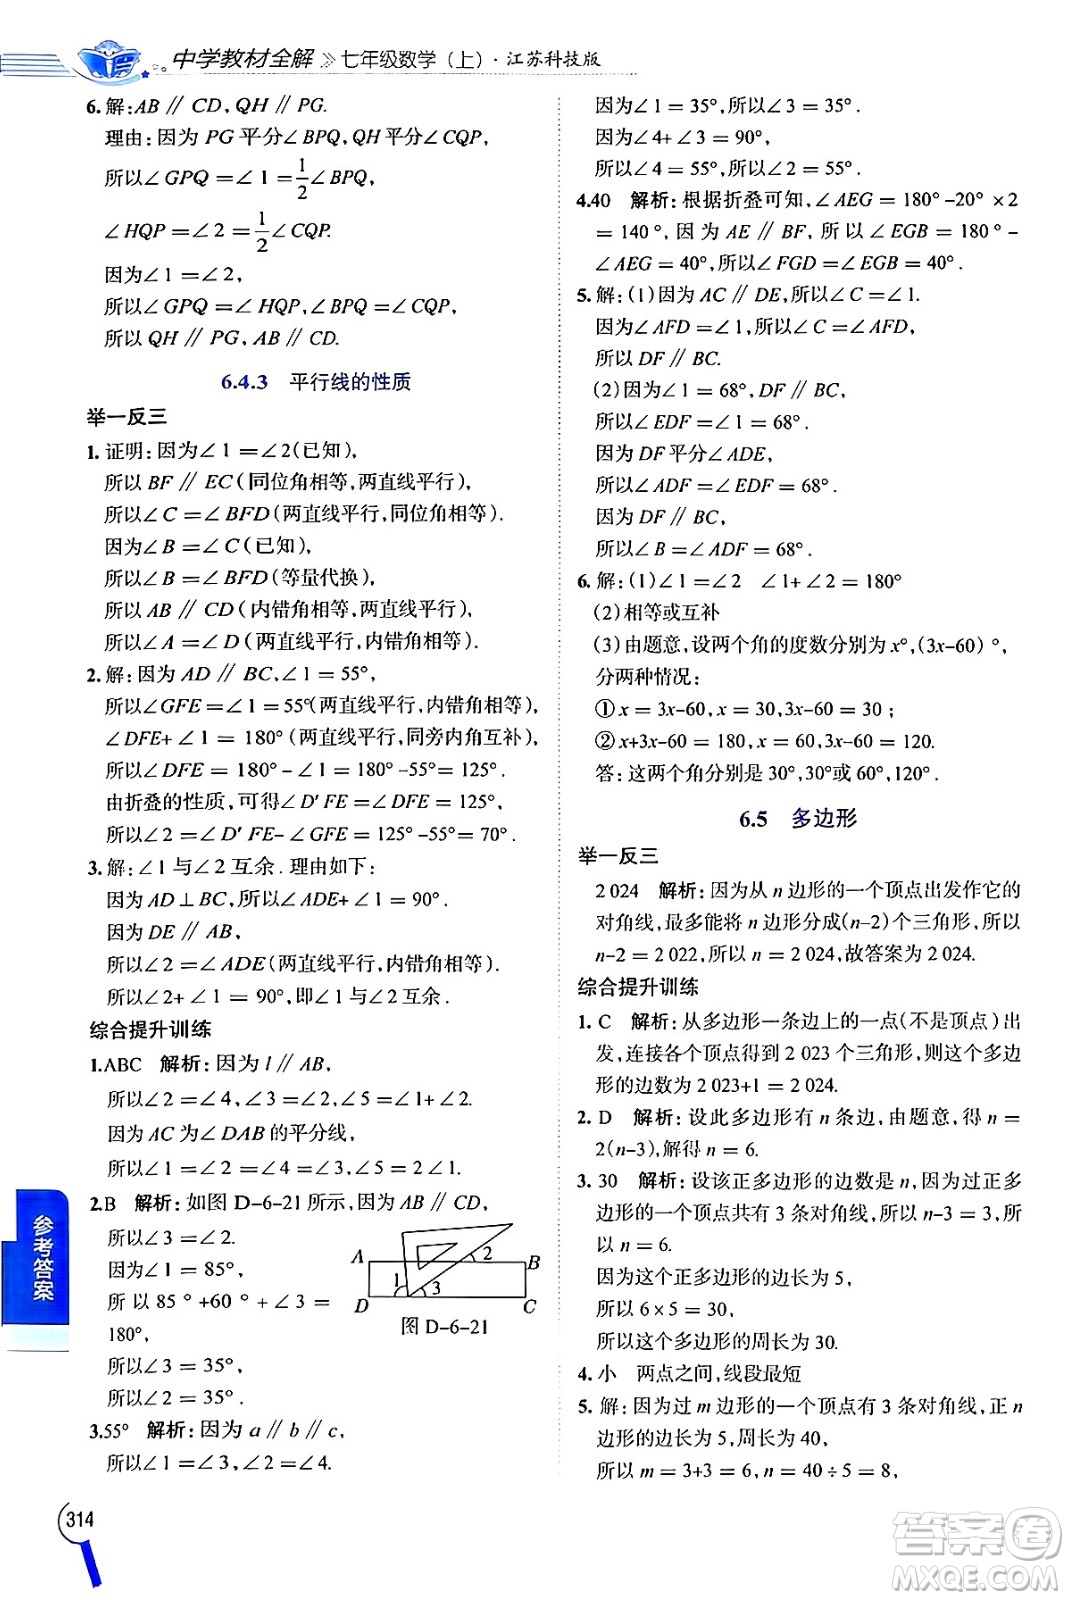 中学教材全解 》七年级数学（上）· 江苏科技版
6. 解：AB // CD，QH // PG.
理由：因为 PG 平分∠BPQ，QH 平分∠CQP，
所以∠GPQ = ∠1 = 1/2 ∠BPQ，
∠HQP = ∠2 = 1/2 ∠CQP.
因为∠1 = ∠2，
所以∠GPQ = ∠HQP，∠BPQ = ∠CQP，
所以 QH // PG，AB // CD.
6.4.3 平行线的性质
举一反三
1. 证明：因为∠1 = ∠2（已知），
所以 BF // EC（同位角相等，两直线平行），
所以∠C = ∠BFD（两直线平行，同位角相等）.
因为∠B = ∠C（已知），
所以∠B = ∠BFD（等量代换），
所以 AB // CD（内错角相等，两直线平行），
所以∠A = ∠D（两直线平行，内错角相等）.
2. 解：因为 AD // BC，∠1 = 55°，
所以∠GFE = ∠1 = 55°（两直线平行，内错角相等），
∠DFE+∠1 = 180°（两直线平行，同旁内角互补），
所以∠DFE = 180°–∠1 = 180°–55°= 125°.
由折叠的性质，可得∠D′FE = ∠DFE = 125°，
所以∠2 = ∠D′FE–∠GFE = 125°–55°= 70°.
3. 解：∠1 与∠2 互余. 理由如下：
因为 AD ⊥ BC，所以∠DAE+∠1 = 90°.
因为 DE // AB，
所以∠2 = ∠ADE（两直线平行，内错角相等）.
所以∠2+∠1 = 90°，所以∠1 与∠2 互余.
综合提升训练
1.ABC 解析：因为 l // AB，
所以∠2 = ∠4，∠3 = ∠5 = ∠1+∠2.
因为 AC 为∠DAB 的平分线，
所以∠1 = ∠2 = ∠4 = ∠3，∠5 = 2∠4.
2.B 解析：如图 D-6-21 所示，因为 AB // CD，
所以∠3 = ∠2.
因为∠1 = 85°，
所以 85°+60°+∠3 =
180°，
所以∠3 = 35°，
所以∠2 = 35°.
A B D C 1 2 3
图 D-6-21
3.55° 解析：因为 a // b // c，
所以∠1 = ∠3，∠2 = ∠4.
因为∠1 = 35°，所以∠3 = 35°.
因为∠4+∠3 = 90°，
所以∠4 = 55°，所以∠2 = 55°.
4.40 解析：根据折叠可知，∠AEG = 180°–20°×2
= 140°，因为 AE // BF，所以∠EGB = 180°–
∠AEG = 40°，所以∠FGD = ∠EGB = 40°.
5. 解：(1)因为 AC // DE，所以∠C = ∠1.
因为∠AFD = ∠1，所以∠C = ∠AFD，
所以 DF // BC.
(2)因为∠1 = 68°，DF // BC，
所以∠EDF = ∠1 = 68°，
因为 DF 平分∠ADE，
所以∠ADF = ∠EDF = 68°.
因为 DF // BC，
所以∠B = ∠ADF = 68°.
6. 解：(1)∠1 = ∠2 ∠1+∠2 = 180°
(2)相等或互补
(3)由题意，设两个角的度数分别为 x°，(3x–60)°，
分两种情况：
①x = 3x–60，x = 30，3x–60 = 30；
②x+3x–60 = 180，x = 60，3x–60 = 120.
答：这两个角分别是 30°，30°或 60°，120°.
6.5 多边形
举一反三
2 024 解析：因为从 n 边形的一个顶点出发作它的
对角线，最多能将 n 边形分成(n–2)个三角形，所以
n–2 = 2 022，所以 n = 2 024，故答案为 2 024.
综合提升训练
1. C 解析：从多边形一条边上的一点（不是顶点）出
发，连接各个顶点得到 2 023 个三角形，则这个多边
形的边数为 2 023+1 = 2 024.
2. D 解析：设此多边形有 n 条边，由题意，得 n =
2(n–3)，解得 n = 6.
3. 30 解析：设该正多边形的边数为 n，因为过正多
边形的一个顶点共有 3 条对角线，所以 n–3 = 3，所
以 n = 6.
因为这个正多边形的边长为 5，
所以 6 × 5 = 30，
所以这个多边形的周长为 30.
4. 小 两点之间，线段最短
5. 解：因为过 m 边形的一个顶点有 3 条对角线，正 n
边形的边长为 5，周长为 40，
所以 m = 3+3 = 6，n = 40 ÷ 5 = 8，
参考答案
314
答案圈
MXQE.COM